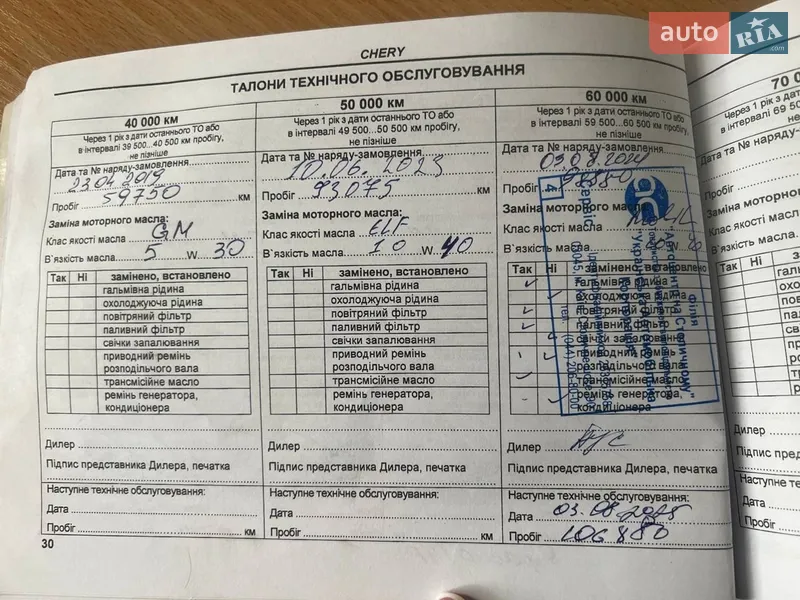 auto RIA .com
CHERY
ТАЛОНИ ТЕХНІЧНОГО ОБСЛУГОВУВАННЯ
40 000 км
Через 1 рік з дати останнього ТО або
в інтервалі 39 500...40 500 км пробігу,
не пізніше
Дата та № наряду-замовлення
23.04.2019
Пробіг 59750 км
Заміна моторного масла:
Клас якості масла GM
В`язкість масла 5 W 30
Так Ні замінено, встановлено
гальмівна рідина
охолоджуюча рідина
повітряний фільтр
паливний фільтр
свічки запалювання
приводний ремінь
розподільчого вала
трансмісійне масло
ремінь генератора,
кондиціонера
Дилер
Підпис представника Дилера, печатка
Наступне технічне обслуговування:
Дата
Пробіг км
30
50 000 км
Через 1 рік з дати останнього ТО або
в інтервалі 49 500...50 500 км пробігу,
не пізніше
Дата та № наряду-замовлення
10.06.2023
Пробіг 93075 км
Заміна моторного масла:
Клас якості масла ELF
В`язкість масла 10 W 40
Так Ні замінено, встановлено
гальмівна рідина
охолоджуюча рідина
повітряний фільтр
паливний фільтр
свічки запалювання
приводний ремінь
розподільчого вала
трансмісійне масло
ремінь генератора,
кондиціонера
Дилер
Підпис представника Дилера, печатка
Наступне технічне обслуговування:
Дата
Пробіг км
60 000 км
Через 1 рік з дати останнього ТО або
в інтервалі 59 500...60 500 км пробігу,
не пізніше
Дата та № наряду-замовлення
03.08.2024
Пробіг
Заміна моторного масла:
Клас якості масла
В`язкість масла
Так Ні замінено, встановлено
гальмівна рідина
охолоджуюча рідина
повітряний фільтр
паливний фільтр
свічки запалювання
приводний ремінь
розподільчого вала
трансмісійне масло
ремінь генератора,
кондиціонера
Дилер
Підпис представника Дилера, печатка
Наступне технічне обслуговування:
Дата 03.08.2025
Пробіг 106880
філія
4
70 0
Через 1 рік з дати
в інтервалі 69 5
Дата та №
Пробіг
Заміна мотор
Клас якості
В`язкість м
Так Ні
Дилер
Підпис
Дата